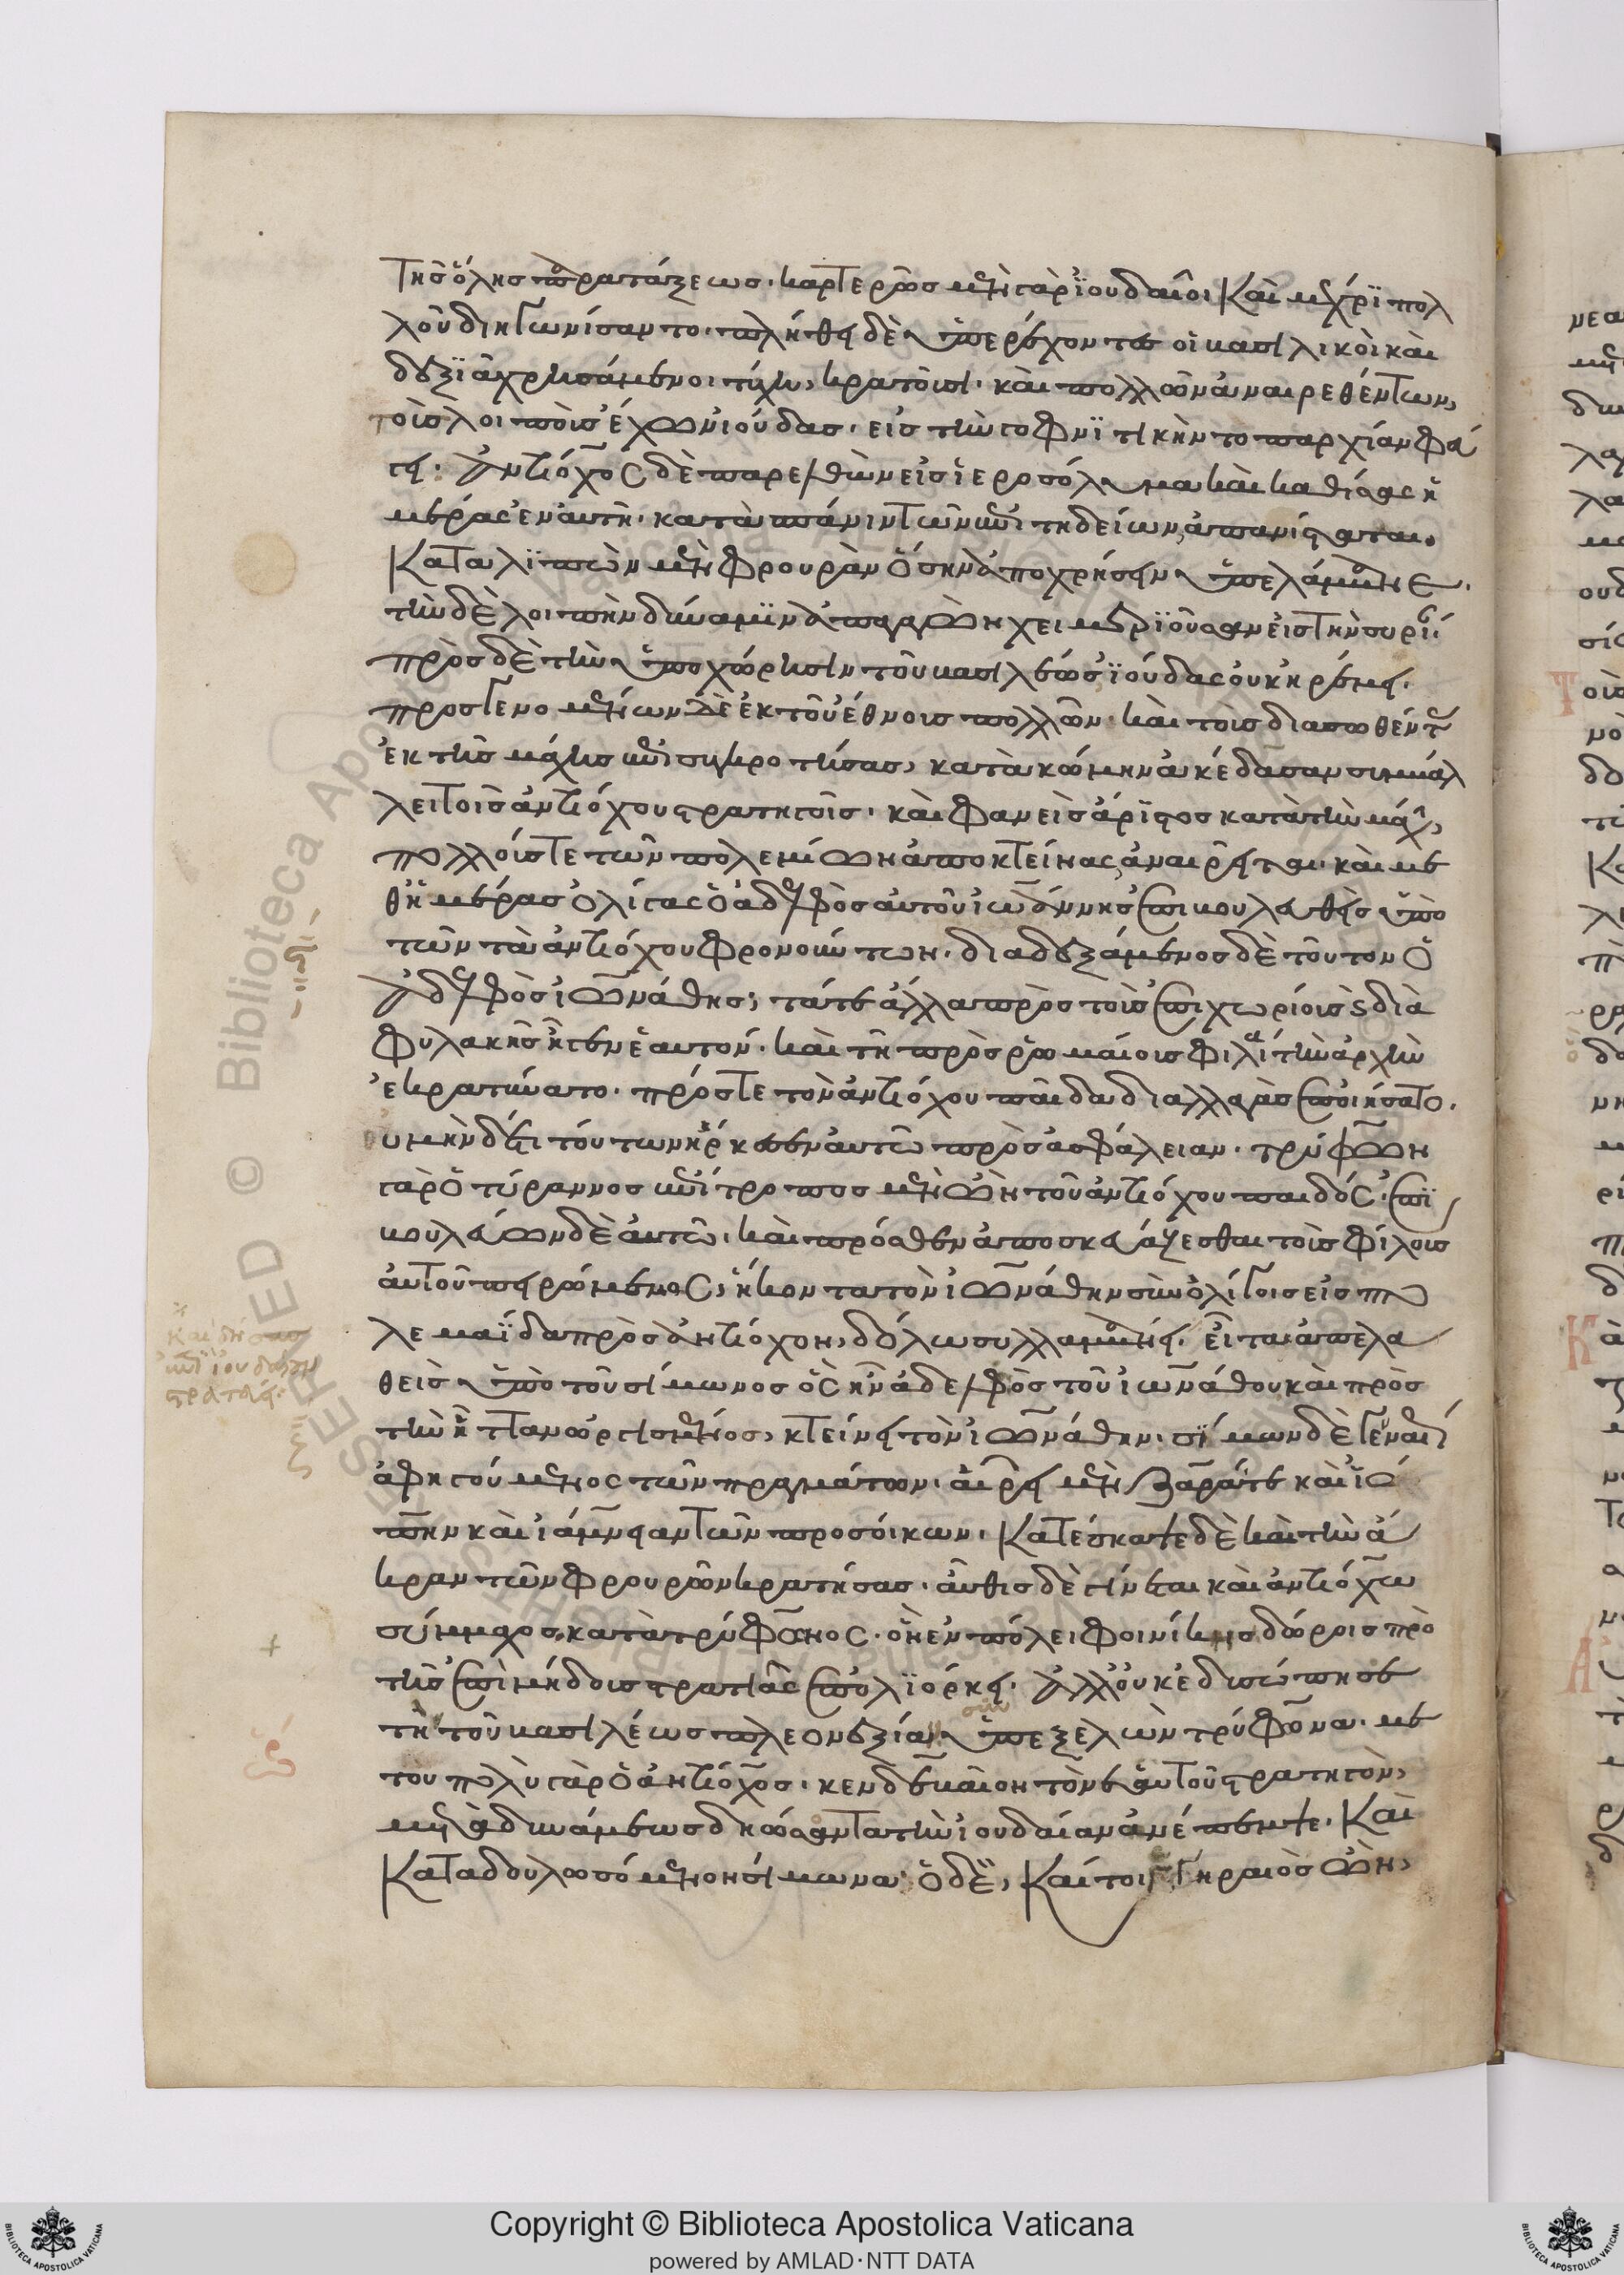 Τῆς ὅλης παρατάξεως. καρτερῶς μὲν γὰρ ϊουδαῖοι καὶ μέχρϊ πολ
λοῦ διηγωνίσαντο. πλήθει δὲ ὑπερέχοντες οἱ βασιλικοὶ καὶ
δεξϊᾶ χρησάμενοι τύχη, κρατοῦσι. καὶ πολλῶν ἀναιρεθέντων,
τοὺς λοιποὺς ἔχων ἰούδας. εἰς τὴν γοφνϊτικὴν τοπαρχίαν φεύ
γει. Ἀντίοχος δὲ παρελθὼν εἰς ἱεροσόλυμα καὶ καθίσας ἡ
μέρας ἐν αὐτῆ. κατὰ σπάνιν τῶν ἐπιτηδείων, ἀπανίσταται.
Καταλϊπὼν μὲν φρουρὰν ὅσην ἀποχρήσειν ὑπελάμβανε.
τὴν δὲ λοιπὴν δύναμϊν ἀπαγαγὼν χειμερϊοῦσαν εἰς τὴν συρί
πρὸς δὲ τὴν ὑποχώρησιν τοῦ βασιλέως ϊούδας οὐκ ἠρέμει.
προσγενομένων δὲ ἐκ τοῦ ἔθνους πολλῶν. καὶ τοὺς διασωθέντ
ἐκ τῆς μάχης ἐπισυγκροτήσας, κατὰ κώμην ἀκέδασαν συμβάλ
λει τοῖς ἀντιόχου στρατηγοῖς. καὶ φανεὶς ἄρϊστος κατὰ τὴν μάχ,
πολλούς τε τῶν πολεμίων ἀποκτείνας, ἀναιρεῖται. καὶ με
θ᾽ ἡμέρας ὀλίγας ὁ ἀδελφὸς αὐτοῦ ἰωάννης ἐπιβουλευθεὶς ὑπὸ
τῶν τὰ ἀντιόχου φρονούντων. διαδεξάμενος δὲ τοῦτον ὁ
ἀδελφὸς ἰωνάθης, τά τε ἄλλα πρὸς τοὺς ἐπιχωρίους διὰ
φυλακῆς ἦγεν ἑαυτόν. καὶ τῆ πρὸς ῥωμαίους φιλία τὴν ἀρχὴν
ἐκρατύνατο. πρός τε τὸν ἀντιόχου παῖδα διαλλαγὰς ἐποιήσατο.
οὐ μὴν δέ τι τούτων ἤρκεσεν αὐτῶ πρὸς ἀσφάλειαν. τρύφων
γὰρ ὁ τύραννος ἐπίτροπος μὲν ὢν τοῦ ἀντιόχου παιδός. ἐπϊ
βουλεύων δὲ αὐτῶ. καὶ πρόσθεν ἀποσκευάζεσθαι τοὺς φίλους
αὐτοῦ πειρώμενος, ἥκοντα τὸν ἰωνάθην σὺν ὀλίγοις εἰς πτο
λεμαΐδα πρὸς ἀντίοχον, δόλω συλλαμβάνει. εἶτα ἀπελα
θεὶς ὑπὸ τοῦ σίμωνος ὃς ἦν ἀδελφὸς τοῦ ἰωνάθου καὶ πρὸς
τὴν ἧτταν ὠργισμένος, κτείνει τὸν ἰωνάθην. σίμων δὲ γενναί
ἀφηγούμενος τῶν πραγμάτων. αἱρεῖ μὲν ζάρατε καὶ ἰό
πην καὶ ἰάμνειαν τῶν προσοίκων. Κατέσκαψε δὲ καὶ τὴν ἄ
κραν τῶν φρουρῶν κρατήσας. αὖθις δὲ γίνεται καὶ ἀντιόχω
σύμμαχος κατὰ τρύφωνος. ὃν ἐν πόλει φοινίκης δώροις πρὸ
τῆς ἐπὶ μήδους στρατιᾶς ἐπολϊόρκει. Ἀλλ᾽ οὐκ ἐδυσώπησε
τὴν τοῦ βασιλέως πλεονεξίαν ὑπεξελὼν τρύφωνα. με
τ᾽ οὐ πολὺ γὰρ ὁ ἀντίοχος. κενδεβαῖον τόν ἑαυτοῦ στρατηγόν,
μετὰ δυνάμεως δηώσοντα τὴν ἰουδαίαν ἀνέπεμψε. Καὶ
Καταδουλωσόμενον σίμωνα. ὁ δὲ, Καίτοι γηραιὸς ὢν,
καὶ δήσας
ἐπὶ ἰουδαίαν
στρατεύει